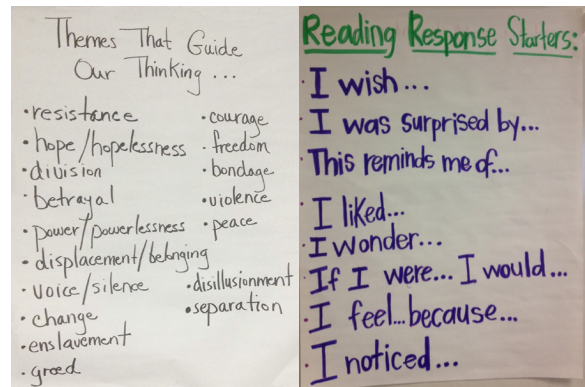 Themes That Guide
Our Thinking ...
• resistance
• hope/hopelessness
• division
• betrayal
• power/powerlessness
• displacement/belonging
• voice/silence
• change
• enslavement
• greed
• courage
• freedom
• bondage
• violence
• peace
• disillusionment
• separation
Reading Response Starters:
• I wish...
• I was surprised by...
• This reminds me of...
• I liked...
• I wonder...
• If I were... I would...
• I feel...because...
• I noticed...